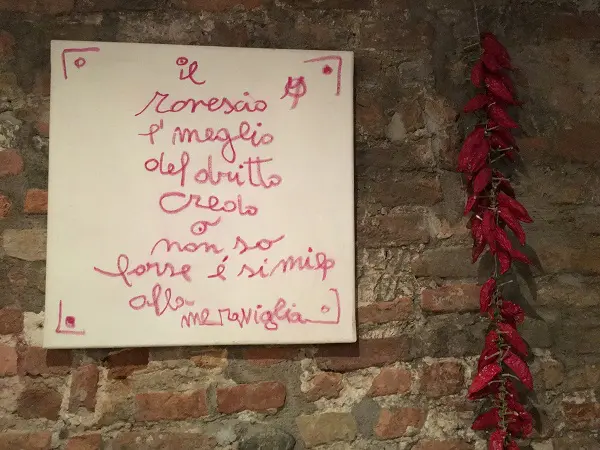 il
rovescio
è meglio
del dritto
credo
o
non so
forse é simile
alla
meraviglia